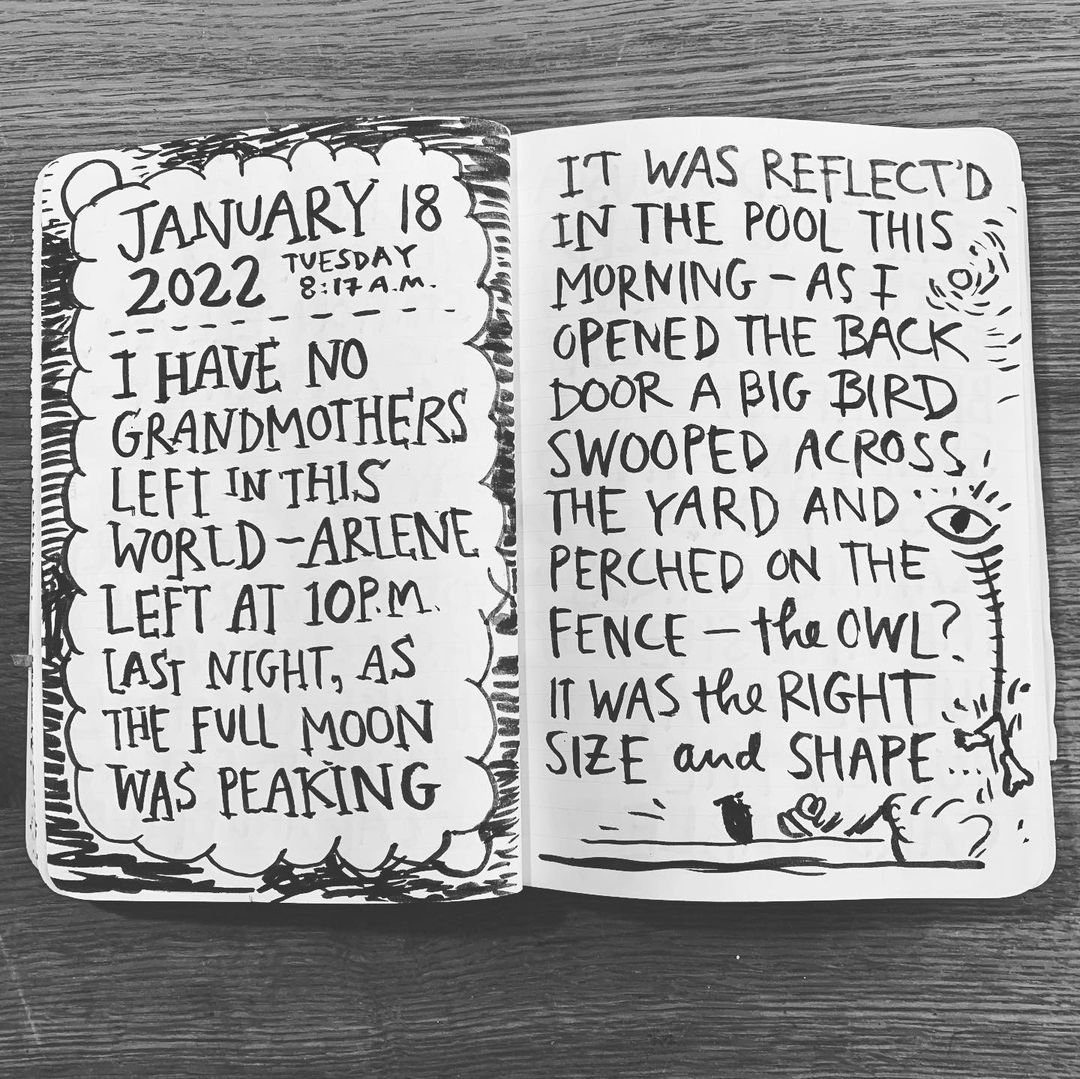 JANUARY 18
2022 TUESDAY
8:17 A.M.
I HAVE NO
GRANDMOTHERS
LEFT IN THIS
WORLD – ARLENE
LEFT AT 10P.M.
LAST NIGHT, AS
THE FULL MOON
WAS PEAKING
IT WAS REFLECT'D
IN THE POOL THIS
MORNING – AS I
OPENED THE BACK
DOOR A BIG BIRD
SWOOPED ACROSS
THE YARD AND
PERCHED ON THE
FENCE – the OWL?
IT WAS the RIGHT
SIZE and SHAPE...